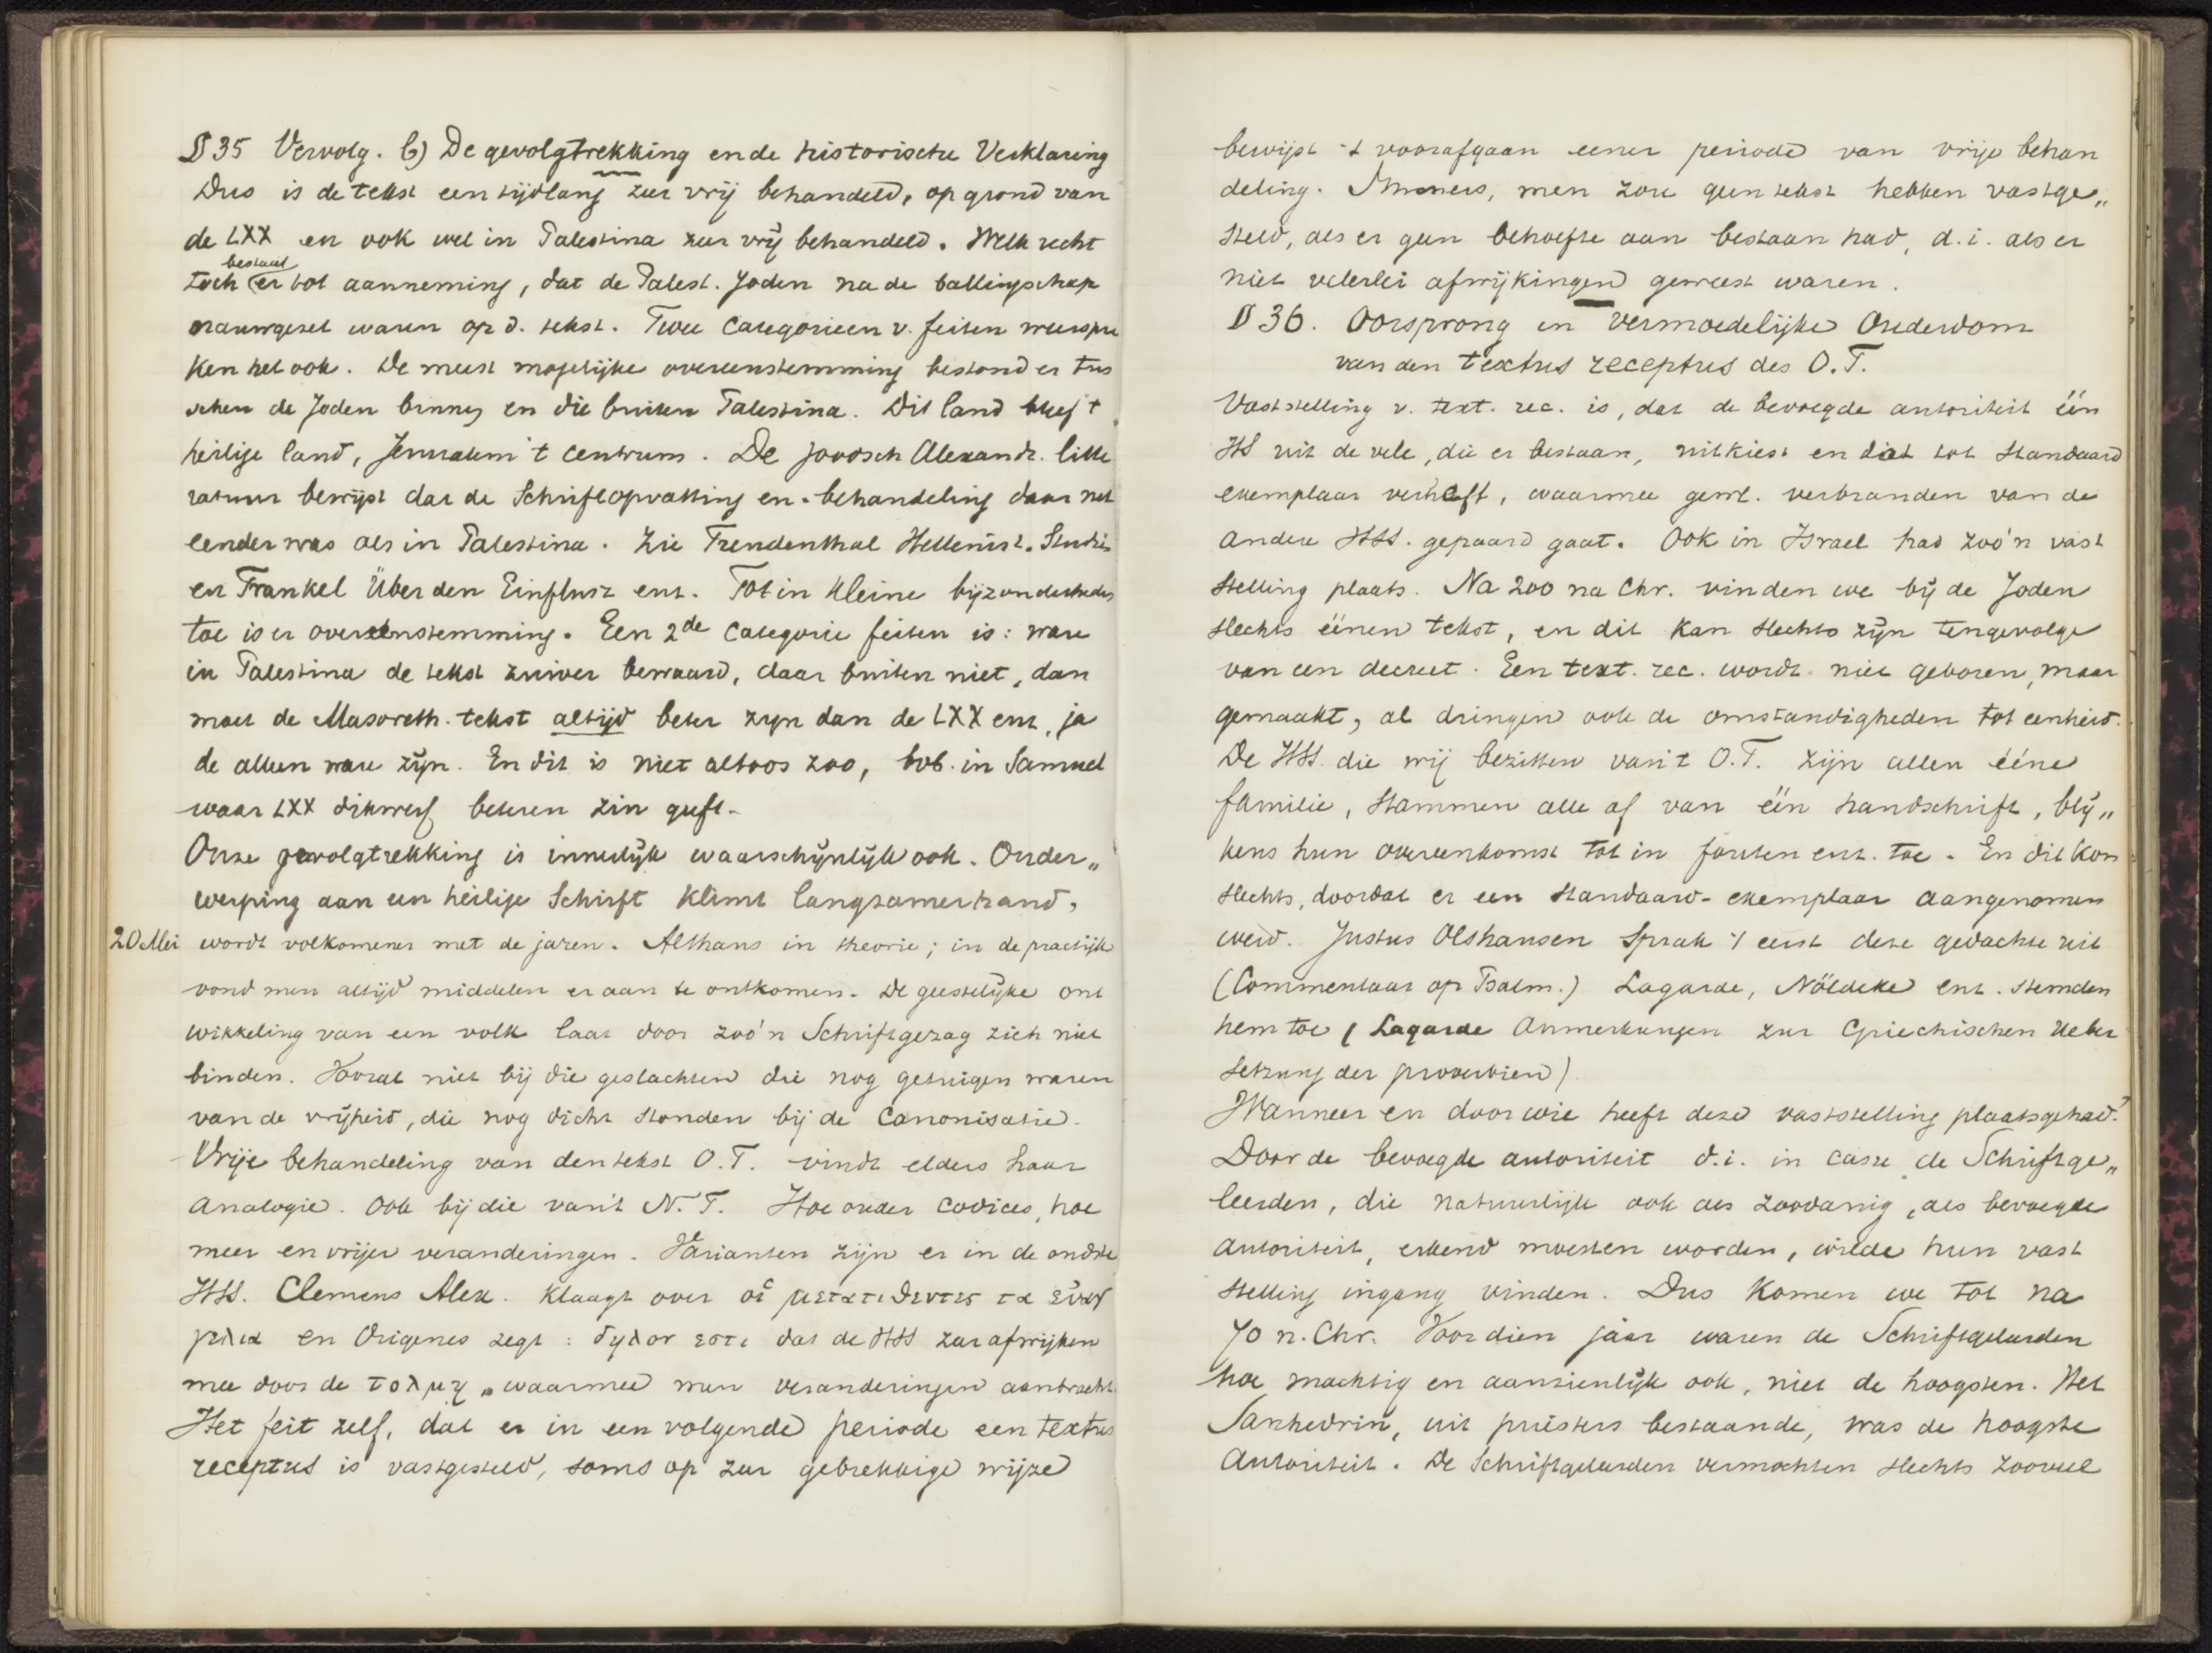 § 35 Vervolg. b) De gevolgtrekking en de historische Verklaring
Dus is de tekst een tijdlang zeer vrij behandeld, op grond van
de LXX en ook wel in Palestina zeer vrij behandeld. Welk recht
bestaat
toch er tot aanneming, dat de Palest. Joden na de ballingschap
nauwgezet waren op d. tekst. Twee categorieen v. feiten weerspre
ken het ook. De meest mogelijke overeenstemming bestond er tus
schen de Joden binnen en die buiten Palestina. Dit land bleef 't
heilige land, Jeruzalem 't centrum. De joodsch Alexandr. litte
ratuur bewijst dat de Schriftopvatting en -behandeling daar net
eender was als in Palestina. Zie Freudenthal Hellenist. Studiën
en Frankel Über den Einflusz enz. Tot in kleine bijzonderheden
toe is er overeenstemming. Een 2de categorie feiten is: ware
in Palestina de tekst zuiver bewaard, daar buiten niet, dan
moet de Masoreth. tekst altijd beter zijn dan de LXX enz, ja
de alleen ware zijn. En dit is niet altoos zoo, bvb. in Samuel
waar LXX dikwerf beteren zin geeft.
Onze gevolgtrekking is innerlijk waarschijnlijk ook. Onder„
werping aan een heilige Schrift klimt langzamerhand,
20 Mei wordt volkomener met de jaren. Althans in theorie; in de practijk
vond men altijd middelen er aan te ontkomen. De geestelijke ont
wikkeling van een volk laat door zoo'n Schriftgezag zich niet
binden. Vooral niet bij die geslachten die nog getuigen waren
van de vrijheid, die nog dicht stonden bij de Canonisatie.
Vrije behandeling van den tekst O.T. vindt elders haar
analogie. Ook bij die van 't N.T. Hoe ouder codices, hoe
meer en vrijer veranderingen. Varianten zijn er in de oudste
HSS. Clemens Alex. klaagt over οἱ μετατιθεντες τα εὐαγ
γελια en Origenes zegt: δηλον εστι dat de HSS zeer afwijken
mee door de τολμη, waarmee men veranderingen aanbracht.
Het feit zelf, dat er in een volgende periode een textus
receptus is vastgesteld, soms op zeer gebrekkige wijze
bewijst 't voorafgaan eener periode van vrije behan
deling. Immers, men zou geen tekst hebben vastge„
steld, als er geen behoefte aan bestaan had, d.i. als er
niet velerlei afwijkingen geweest waren.
§ 36. Oorsprong en vermoedelijke Ouderdom
van den textus receptus des O.T.
Vaststelling v. text. rec. is, dat de bevoegde autoriteit één
HS uit de vele, die er bestaan, uitkiest en dat tot standaard
exemplaar verheft, waarmee gewl. verbranden van de
andere HSS. gepaard gaat. Ook in Israel had zoo'n vast
stelling plaats. Na 200 na Chr. vinden we bij de Joden
slechts éénen tekst, en dit kan slechts zijn tengevolge
van een decreet. Een text. rec. wordt niet geboren, maar
gemaakt, al dringen ook de omstandigheden tot eenheid.
De HSS. die wij bezitten van 't O.T. zijn allen ééne
familie, stammen alle af van één handschrift, blij„
kens hun overeenkomst tot in fouten enz. toe. En dit kon
slechts, doordat er een standaard-exemplaar aangenomen
werd. Justus Olshausen sprak 't eerst deze gedachte uit
(Commentaar op Psalm.) Lagarde, Nöldeke enz. stemden
hem toe (Lagarde Anmerkungen zur Griechischen Ueber
setzung der proverbien)
Wanneer en door wie heeft deze vaststelling plaatsgehad?
Door de bevoegde autoriteit d.i. in casu de Schriftge„
leerden, die natuurlijk ook als zoodanig, als bevoegde
autoriteit, erkend moesten worden, wilde hun vast
stelling ingang vinden. Dus komen we tot na
70 n. Chr. Voor dien jaar waren de Schriftgeleerden
hoe machtig en aanzienlijk ook, niet de hoogsten. Het
Sanhedrin, uit priesters bestaande, was de hoogste
Autoriteit. De Schriftgeleerden vermochten slechts zooveel